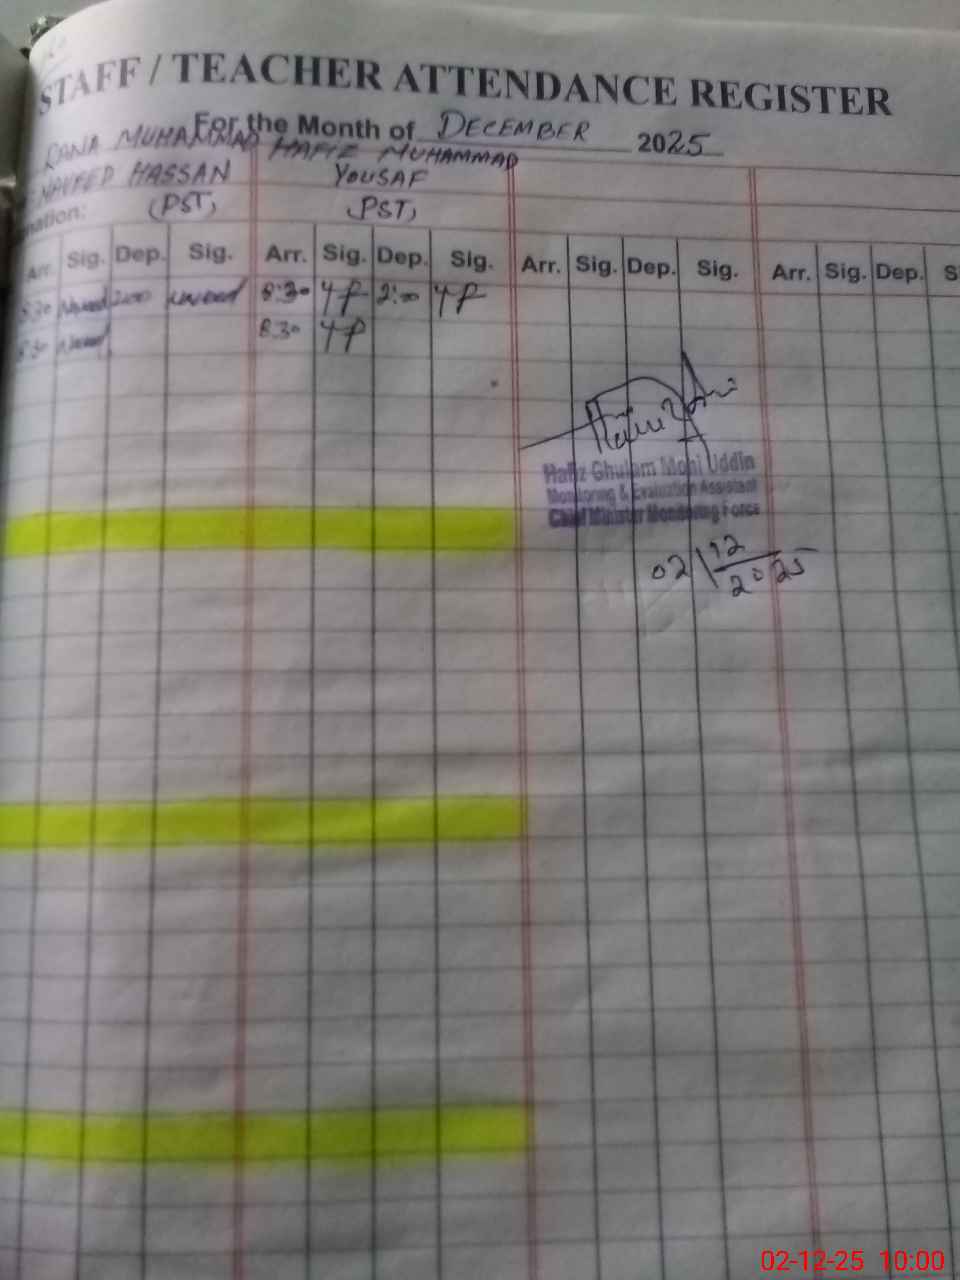 STAFF / TEACHER ATTENDANCE REGISTER
For the Month of DECEMBER 2025
RANA MUHAMMAD HAFIZ MUHAMMAD
NAVEED HASSAN YOUSAF
nation: (PST) (PST)
Arr. Sig. Dep. Sig. Arr. Sig. Dep. Sig. Arr. Sig. Dep. Sig. Arr. Sig. Dep. S
8:30 2:00 8:30 2:00
8:30 8:30
Hafiz Ghulam Mohi Uddin
Monitoring & Evaluation Assistant
Chief Minister Monitoring Force
02/12/2025
02-12-25 10:00